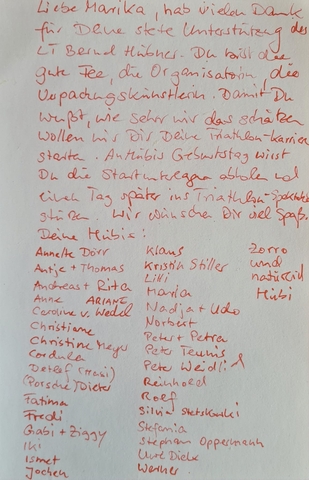 Liebe Marika, hab vielen Dank
für Deine stete Unterstützung des
LT Bernd Hübner. Du bist die
gute Fee, die Organisatorin, die
Verpackungskünstlerin. Damit Du
wußt, wie sehr wir das schätzen
wollen wir Dir Deine Triathlon-Karriere
starten. An Hübis Geburtstag wirst
Du die Startunterlagen abholen und
einen Tag später ins Triathlon-Spektakel
stürzen. Wir wünschen Dir viel Spaß.
Deine Hübis:
Annette Dörr
Antje + Thomas
Andreas + Rita
Anne ARIANE
Caroline v. Wedel
Christiane
Christine Meyer
Cordula
Detlef (Hasi)
(Porsche) Dieter
Fatima
Fredi
Gabi + Ziggy
Iki
Ismet
Jochen
Klaus
Kristin Stiller
Lilli
Maria
Nadja + Udo
Norbert
Peter + Petra
Peter Teunis
Peter Weidlich
Reinhold
Rolf
Silvia
Stefania
Stephan Oppermann
Uwe
Werner
Zorro
und
natürlich
Hübi